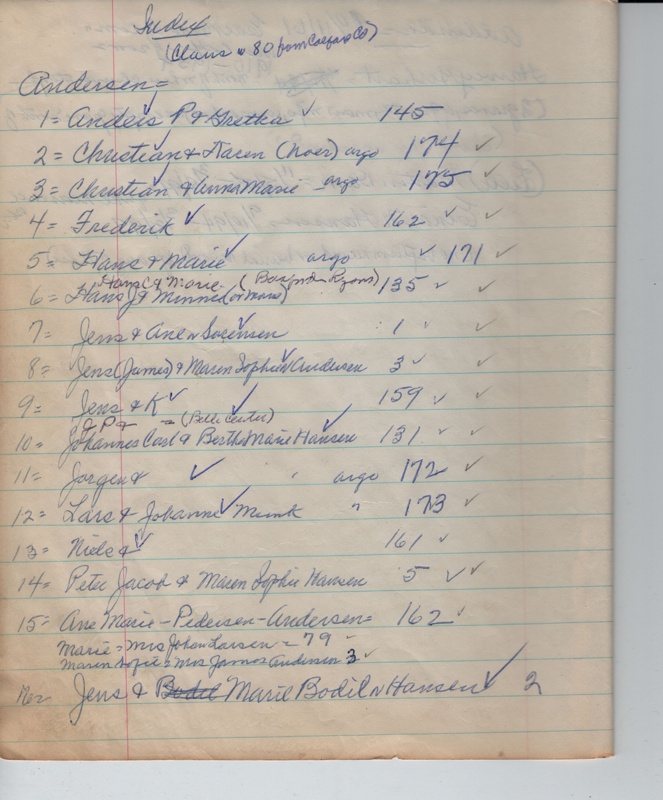 Index
(Claus = 80 from Colfax Co)
Andersen =
1 = Anders P & Gretha ✓ 145
2 = Christian & Karen (Noer) argo 174 ✓
3 = Christian & Anna Marie argo 175 ✓
4 = Frederik ✓ 162 ✓ ✓
5 = Hans & Marie argo ✓ 171 ✓
Hans C & Marie - (
6 = Hans J & Minnie (or Marie) 135 ✓ ✓
7 = Jens & Ane N Sorensen 1 ✓ ✓
8 = Jens (James) & Maren Sophie N Andersen 3 ✓ ✓
9 = Jens & K ✓ 159 ✓ ✓
J P & = (Belle Center)
10 = Johannes Carl & Bertha Marie Hansen 131 ✓ ✓
11 = Jorgen & ✓ " argo 172 ✓
12 = Lars & Johanne Munk " 173 ✓
13 = Niels & ✓ 161 ✓ ✓
14 = Peter Jacob & Maren Sophie Hansen 5 ✓ ✓
15 = Ane Marie - Pedersen - Andersen = 162 ✓
Marie = Mrs Johan Larsen = 79
Maren Sofie = Mrs James Andersen 3 ✓
Jens & Bodil Marie Bodil N Hansen ✓ 2